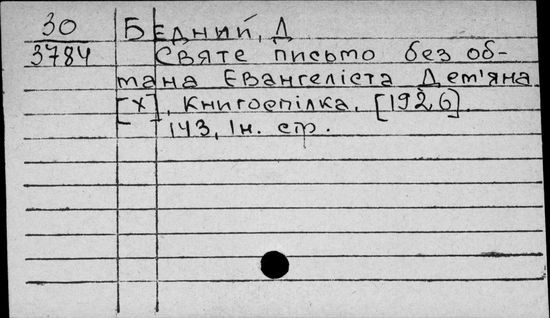 30 Бєдний, Д
3784 Святе письмо без об-
мана Євангеліста Дем'яна.
[Х], Книгоспілка. [1926].
143, Iн. стр.